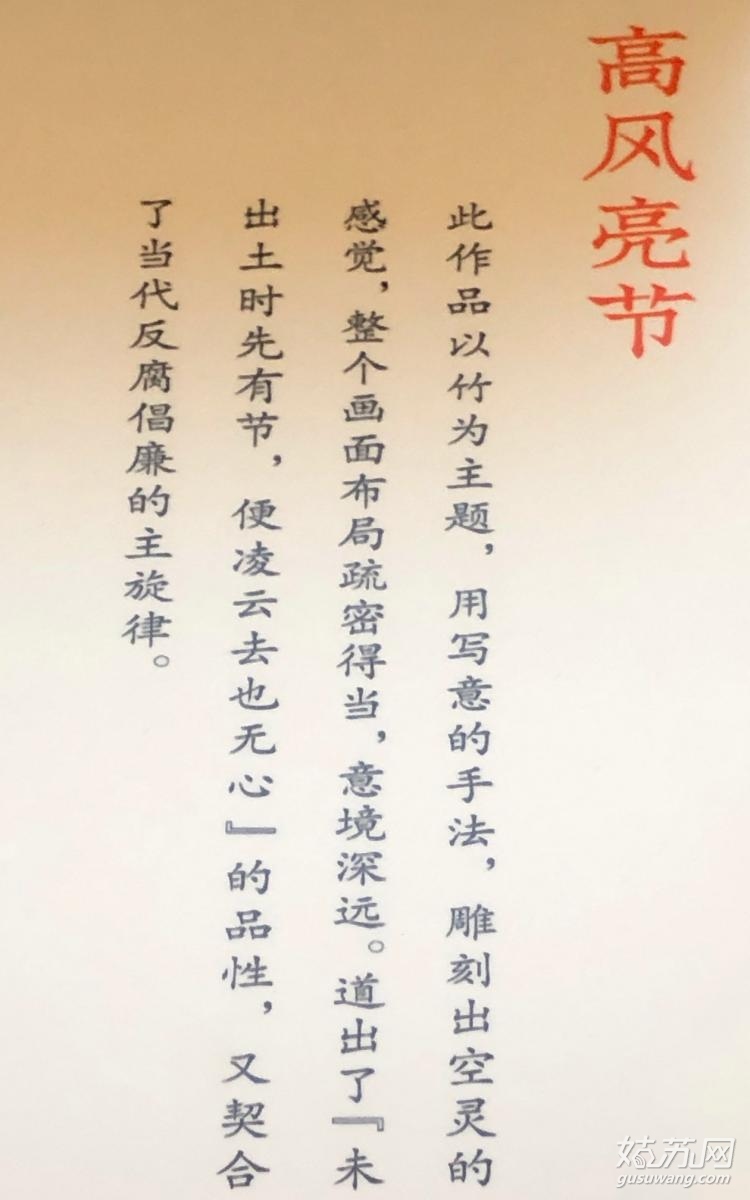 高风亮节
此作品以竹为主题，用写意的手法，雕刻出空灵的
感觉，整个画面布局疏密得当，意境深远。道出了『未
出土时先有节，便凌云去也无心』的品性，又契合
了当代反腐倡廉的主旋律。
姑苏网
gusuwang.com